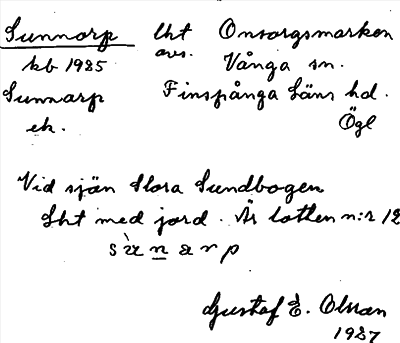 Sunnarp lht Onsorgsmarken
avs. Vånga sn.
kb 1925
Sunnarp Finspånga Läns hd.
ek. Ögl
Vid sjön Stora Sundbogen
Lht med jord. Är lotten n:r 12
sùnarp
Gustaf E. Olsson
1927